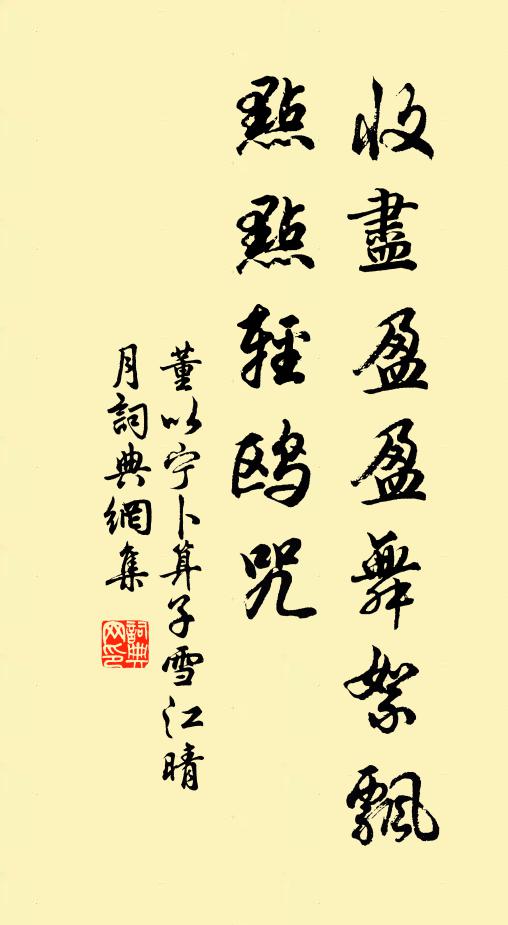 收盡盈盈舞絮飄
點點輕鸥咒
董以宁卜算子雪江晴
月詞典網集
詞典
网印